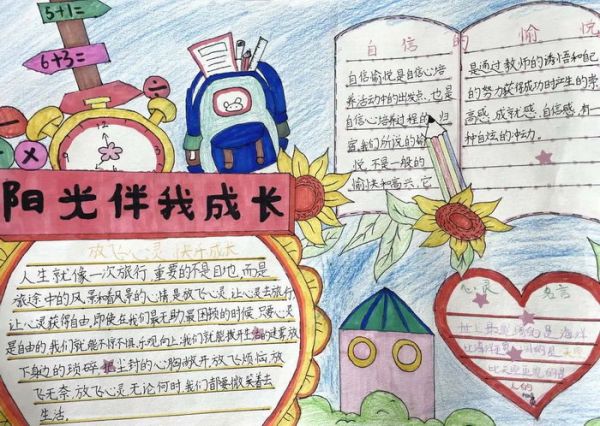 5+1=
6+3=
12
阳光伴我成长
放飞心灵 快乐成长
人生就像一次旅行,重要的不是目地,而是
旅途中的风景和看风景的心情是放飞心灵让心灵去旅行
让心灵获得自由,即使在我们最无助最困顿的时候,只要心灵
是自由的我们就能不得不惧,乐观向上,我们就能拨开生活的迷雾,放
下身边的琐碎,把尘封的心胸敞开,放飞烦恼,放
飞无奈,放飞心灵,无论何时我们都要微笑着去
生活。
自信的愉悦
自信愉悦是自信心培
养活动中的出发点,也是
自信心培养过程的归
宿,我们所说的愉
悦,不是一般的
愉快和高兴,它
是通过教师的诱悟和自己
的努力获得成功时产生的崇
高感,成就感,自信感,有一
种自炫的冲动。
心灵名言
世上最宽阔的是海洋
比海洋更宽阔的是天空
比天空更宽阔的是
人的